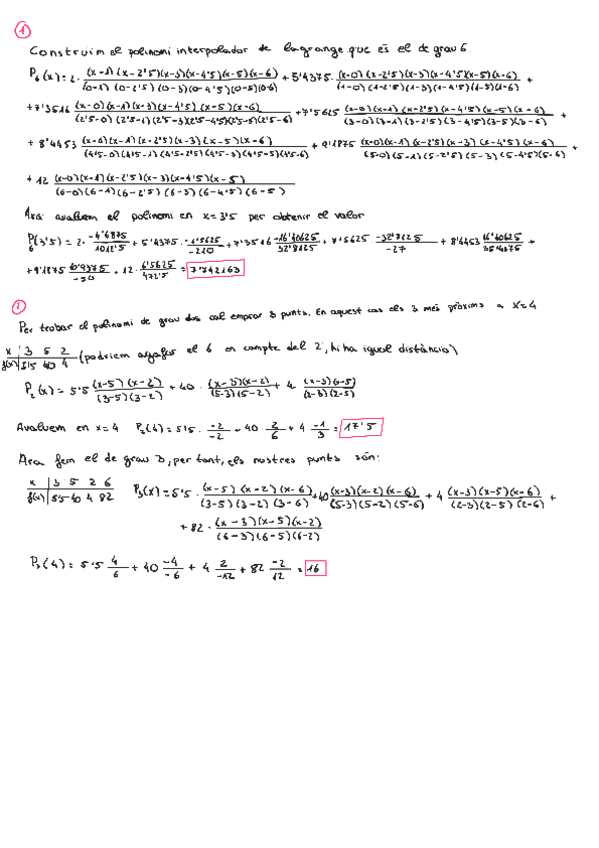 1
Construim el polinomi interpolador de lagrange que és el de grau 6.
P₆(x) = 2 · (x-1)(x-2'5)(x-3)(x-4'5)(x-5)(x-6) / (0-1)(0-2'5)(0-3)(0-4'5)(0-5)(0-6) + 5'4375 · (x-0)(x-2'5)(x-3)(x-4'5)(x-5)(x-6) / (1-0)(1-2'5)(1-3)(1-4'5)(1-5)(1-6) +
+ 7'3516 (x-0)(x-1)(x-3)(x-4'5)(x-5)(x-6) / (2'5-0)(2'5-1)(2'5-3)(2'5-4'5)(2'5-5)(2'5-6) + 7'5625 (x-0)(x-1)(x-2'5)(x-4'5)(x-5)(x-6) / (3-0)(3-1)(3-2'5)(3-4'5)(3-5)(3-6) +
+ 8'4453 (x-0)(x-1)(x-2'5)(x-3)(x-5)(x-6) / (4'5-0)(4'5-1)(4'5-2'5)(4'5-3)(4'5-5)(4'5-6) + 9'1875 (x-0)(x-1)(x-2'5)(x-3)(x-4'5)(x-6) / (5-0)(5-1)(5-2'5)(5-3)(5-4'5)(5-6) +
+ 12 (x-0)(x-1)(x-2'5)(x-3)(x-4'5)(x-5) / (6-0)(6-1)(6-2'5)(6-3)(6-4'5)(6-5)
Ara avaluem el polinomi en x=3'5 per obtenir el valor
P₆(3'5) = 2 · -4'6875 / 1012'5 + 5'4375 · -1'5625 / -210 + 7'3516 -16'40625 / 32'8125 + 7'5625 -32'8125 / -27 + 8'4453 16'40625 / +
+ 9'1875 / -50 + 12 · 6'5625 / 472'5 = 7'742163
2
Per trobar el polinomi de grau dos cal emprar 3 punts. En aquest cas els 3 més pròxims a x=4
x | 3 5 2 (podriem agafar el 6 en compte del 2, hi ha igual distància)
f(x) | 5'5 40 4
P₂(x) = 5'5 (x-5)(x-2) / (3-5)(3-2) + 40 · (x-3)(x-2) / (5-3)(5-2) + 4 (x-3)(x-5) / (2-3)(2-5)
Avaluem en x=4 P₂(4) = 5'5 · -2 / -2 + 40 2 / 6 + 4 -1 / 3 = 17'5
Ara fem el de grau 3, per tant, els nostres punts són:
x | 3 5 2 6
f(x) | 5'5 40 4 82
P₃(x) = 5'5 · (x-5)(x-2)(x-6) / (3-5)(3-2)(3-6) + 40 (x-3)(x-2)(x-6) / (5-3)(5-2)(5-6) + 4 (x-3)(x-5)(x-6) / (2-3)(2-5)(2-6) +
+ 82 · (x-3)(x-5)(x-2) / (6-3)(6-5)(6-2)
P₃(4) = 5'5 4 / 6 + 40 -4 / -6 + 4 2 / -12 + 82 -2 / 12 = 16